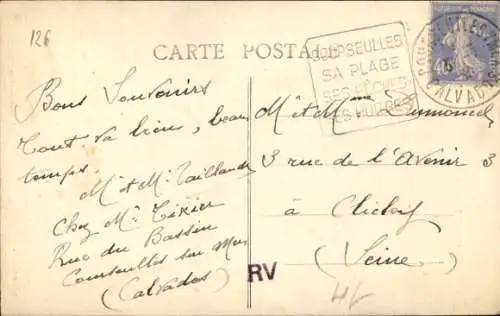 126
CARTE POSTALE
COURSEULLES
SA PLAGE
SES PÊCHES
SES HUITRES
COURSEULLES
CALVADOS
Bons Souvenirs
Tout va bien, beau
temps.
Mr et Me Tailland
Chez Mr Tixier
Rue du Bassin
Courseulles sur Mer
(Calvados)
Mr et Mme Dumoncel
3 rue de l'Avenir 3
à Clichy
(Seine)
RV